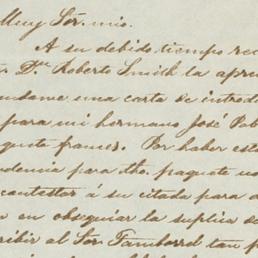 Muy Sór. mio.
A su debido tiempo rec
Dn. Roberto Smith la apre
undame una carta de introdu
para mi hermano José Pab
quete frances. Por haber esta
demia para dho. paquete no
contestar á su citada para d
en obsequiar la suplica d
ribir al Sor. Tamborrel tan p